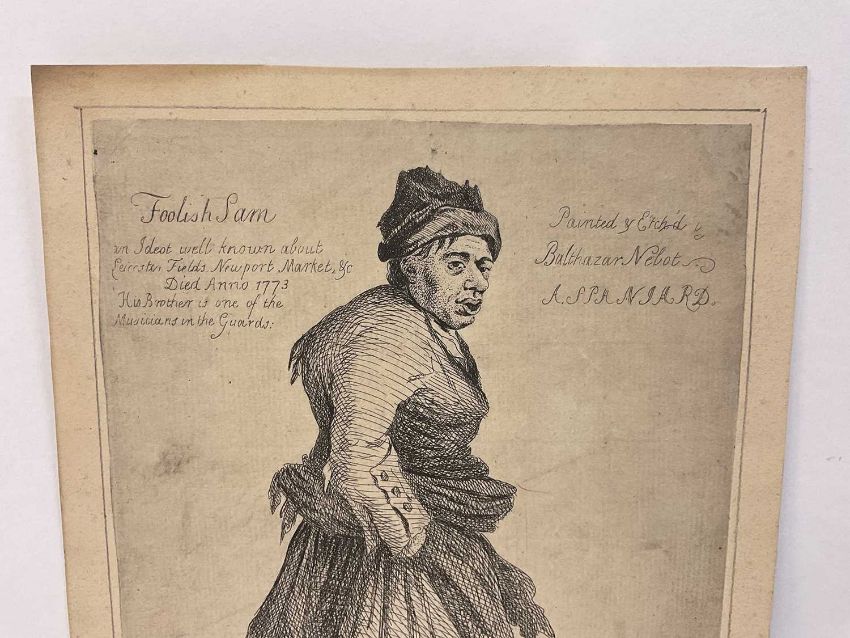 Foolish Sam
an Ideot well known about
Leicester Fields, Newport Market, &c
Died Anno 1773
His Brother is one of the
Musicians in the Guards:
Painted & Etch'd by
Balthazar Nebot
A. SPANIARD.